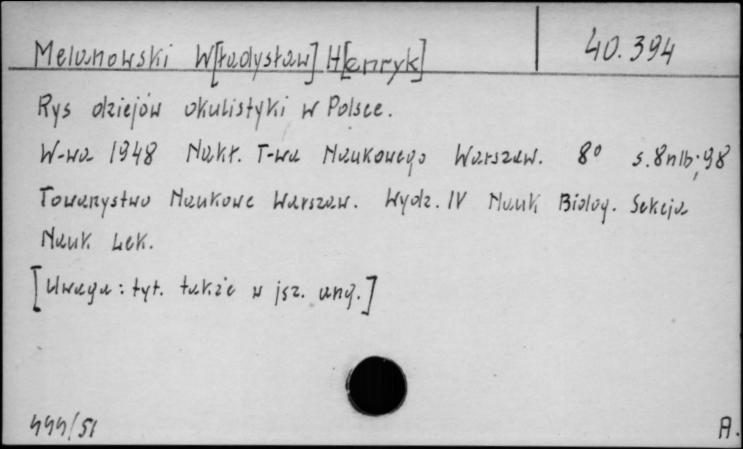 Melanowski W[ładysław] H[enryk]
40.394
Rys dziejów okulistyki w Polsce.
W-wa 1948 Nakł. T-wa Naukowego Warszaw. 8° s.8nlb; 98
Towarzystwo Naukowe Warszaw. Wydz. IV Nauk Biolog. Sekcja
Nauk Lek.
[Uwaga: tyt. także w jęz. ang.]
444/51
A.